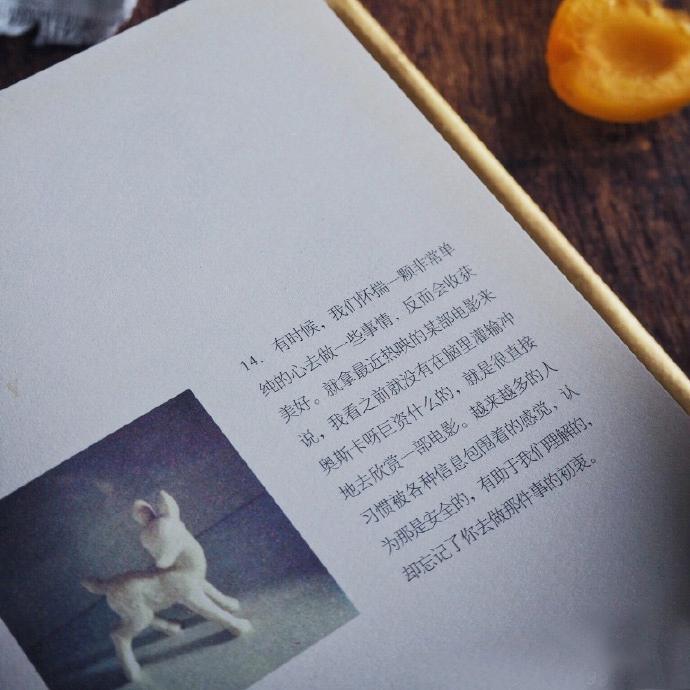 14. 有时候，我们怀揣一颗非常单
纯的心去做一些事情，反而会收获
美好。就拿最近热映的某部电影来
说，我看之前就没有在脑里灌输冲
奥斯卡啊巨资什么的，就是很直接
地去欣赏一部电影。越来越多的人
习惯被各种信息包围着的感觉，认
为那是安全的，有助于我们理解的，
却忘记了你去做那件事的初衷。